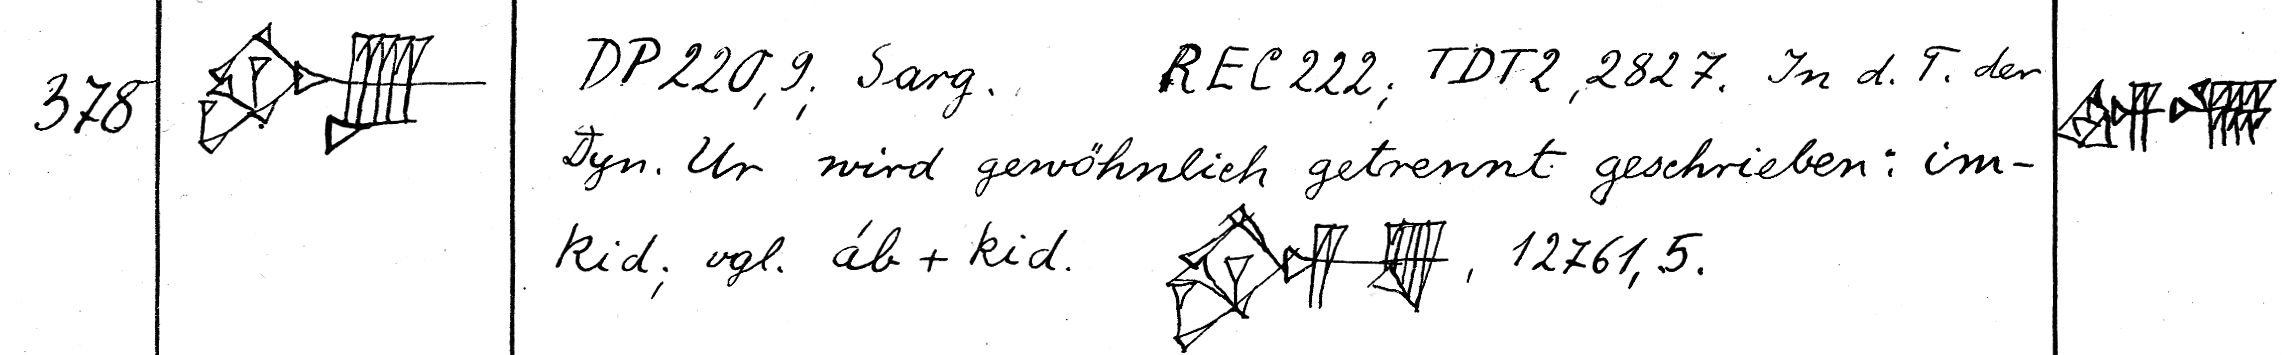 378 DP 220,9; Sarg. REC 222; TDT 2, 2827. In d. T. der
Dyn. Ur wird gewöhnlich getrennt geschrieben: im-
kid; vgl. áb + kid. , 12761,5.